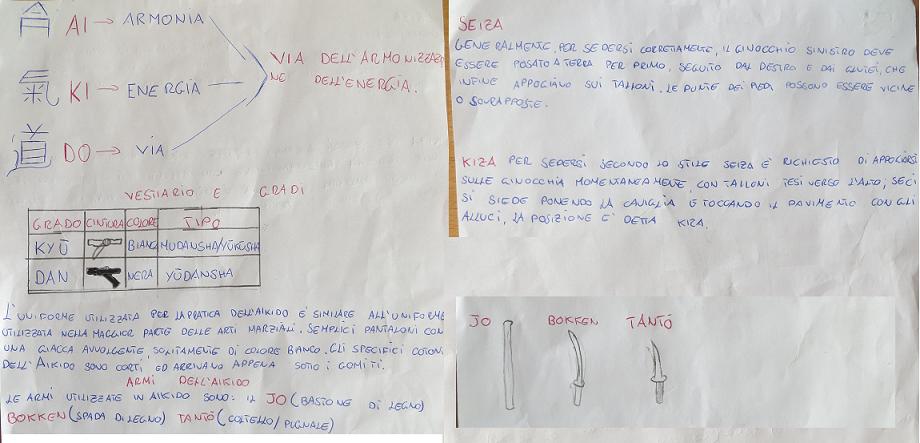 AI → ARMONIA
KI → ENERGIA
DO → VIA
VIA DELL'ARMONIZZAZIO
NE DELL'ENERGIA.
VESTIARIO E GRADI
GRADO CINTURA COLORE TIPO
KYŪ BIANC MUDANSHA/YŪKŪSHA
DAN NERA YŪDANSHA
L'UNIFORME UTILIZZATA PER LA PRATICA DELL'AIKIDO È SIMILARE ALL'UNIFORME
UTILIZZATA NELLA MAGGIOR PARTE DELLE ARTI MARZIALI. SEMPLICI PANTALONI CON
UNA GIACCA AVVOLGENTE, SOLITAMENTE DI COLORE BIANCO. GLI SPECIFICI COTONI
DELL'AIKIDO SONO CORTI ED ARRIVANO APPENA SOTTO I GOMITI.
ARMI DELL'AIKIDO
LE ARMI UTILIZZATE IN AIKIDO SONO: IL JO (BASTONE DI LEGNO)
BOKKEN (SPADA DI LEGNO) TANTŌ (COLTELLO/PUGNALE)
SEIZA
GENERALMENTE, PER SEDERSI CORRETTAMENTE, IL GINOCCHIO SINISTRO DEVE
ESSERE POSATO A TERRA PER PRIMO, SEGUITO DAL DESTRO E DAI GLUTEI, CHE
INFINE APPOGIANO SUI TALLONI. LE PUNTE DEI PIEDI POSSONO ESSERE VICINE
O SOVRAPPOSTE.
KIZA PER SEDERSI SECONDO LO STILE SEIZA È RICHIESTO DI APPOGIARSI
SULLE GINOCCHIA MOMENTANEAMENTE, CON TALLONI TESI VERSO L'ALTO; SE CI
SI SIEDE PONENDO LA CAVIGLIA E TOCCANDO IL PAVIMENTO CON GLI
ALLUCI, LA POSIZIONE E' DETTA KIZA.
JO BOKKEN TANTŌ